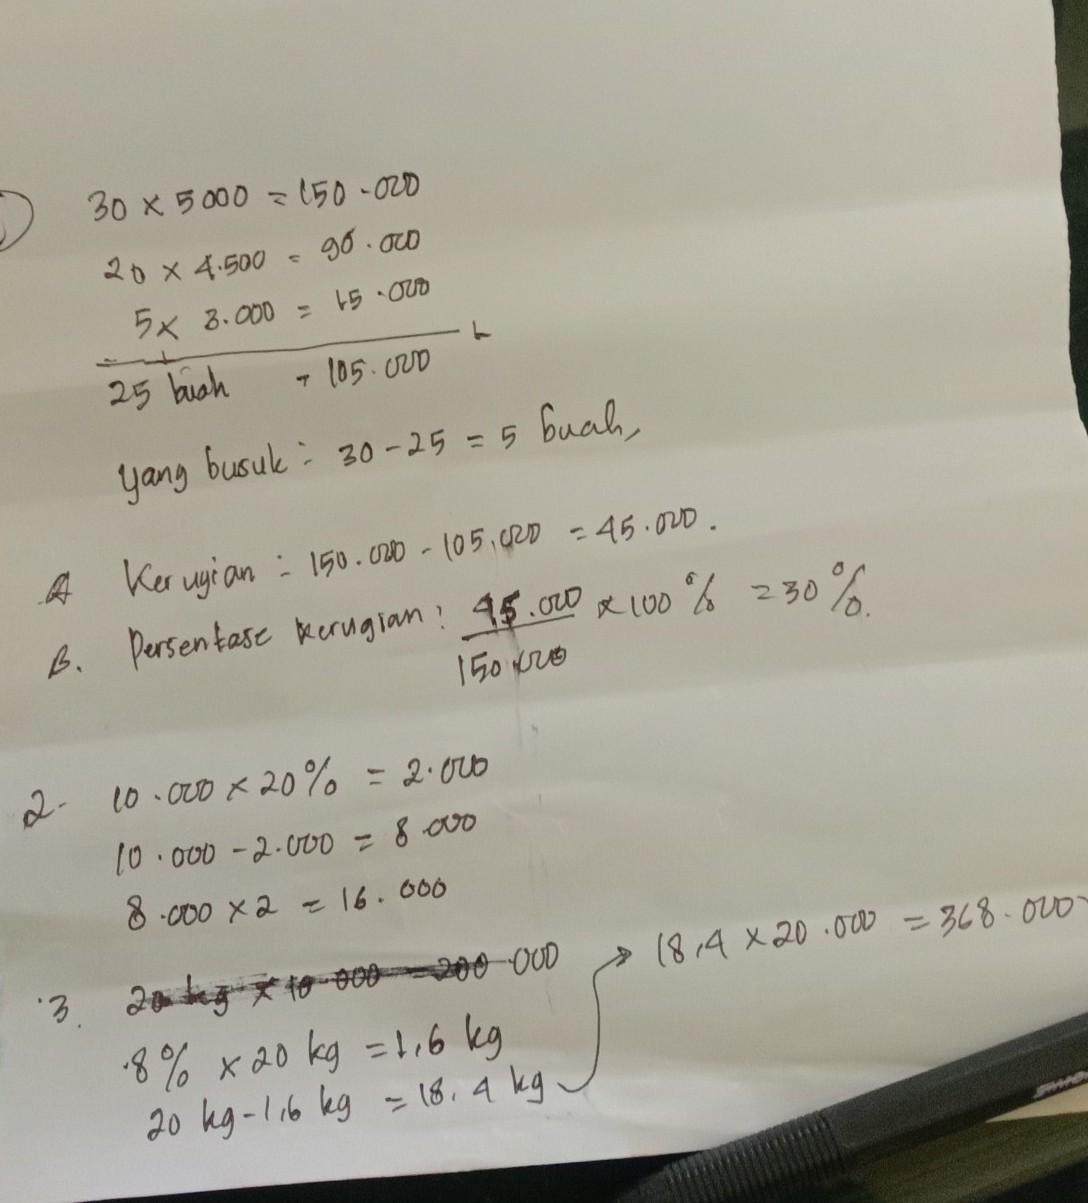 30 × 5000 = 150.000
20 × 4.500 = 90.000
5 × 3.000 = 15.000
25 buah = 105.000
yang busuk : 30 - 25 = 5 buah,
A Kerugian : 150.000 - 105.000 = 45.000.
B. Persentase kerugian : 45.000/150.000 × 100% = 30%.
2. 10.000 × 20% = 2.000
10.000 - 2.000 = 8.000
8.000 × 2 = 16.000
3. 20 kg × 10.000 = 200.000
8% × 20 kg = 1,6 kg
20 kg - 1,6 kg = 18,4 kg → 18,4 × 20.000 = 368.000